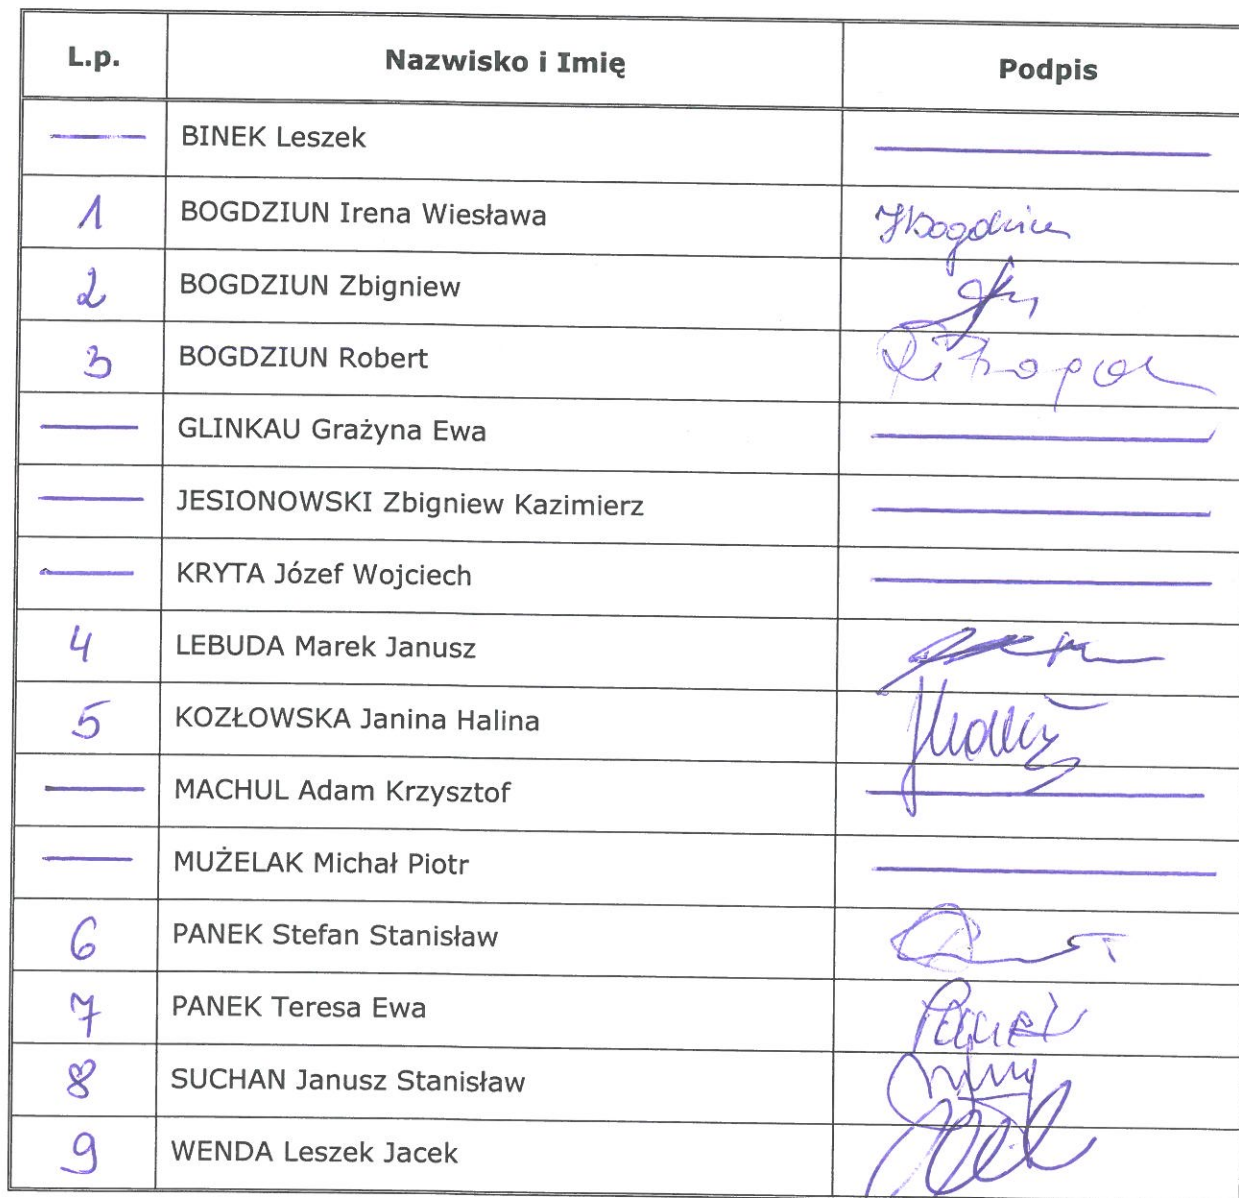 L.p. Nazwisko i Imię Podpis
BINEK Leszek
1 BOGDZIUN Irena Wiesława
2 BOGDZIUN Zbigniew
3 BOGDZIUN Robert
GLINKAU Grażyna Ewa
JESIONOWSKI Zbigniew Kazimierz
KRYTA Józef Wojciech
4 LEBUDA Marek Janusz
5 KOZŁOWSKA Janina Halina
MACHUL Adam Krzysztof
MUŻELAK Michał Piotr
6 PANEK Stefan Stanisław
7 PANEK Teresa Ewa
8 SUCHAN Janusz Stanisław
9 WENDA Leszek Jacek